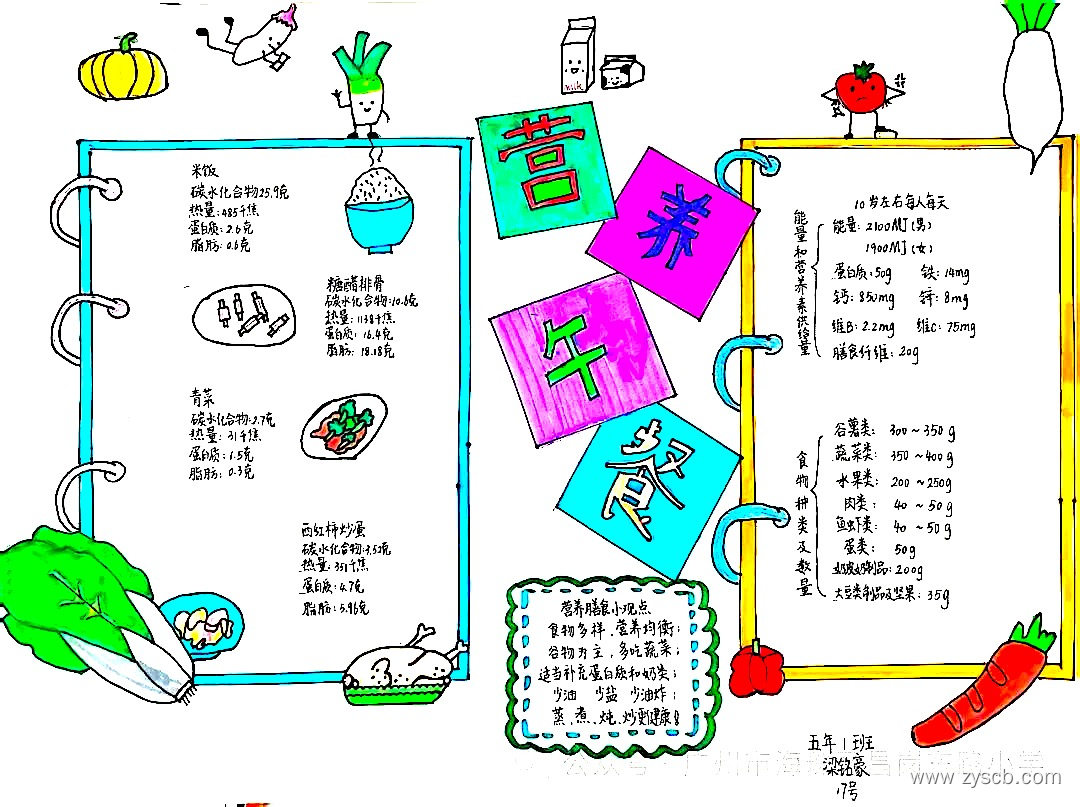 营养午餐
米饭
碳水化合物25.9克
热量:485千焦
蛋白质:2.6克
脂肪:0.6克
糖醋排骨
碳水化合物:10.6克
热量:1138千焦
蛋白质:16.4克
脂肪:18.18克
青菜
碳水化合物:2.7克
热量:31千焦
蛋白质:1.5克
脂肪:0.3克
西红柿炒蛋
碳水化合物:3.52克
热量:351千焦
蛋白质:4.7克
脂肪:5.96克
milk
营养膳食小观点
食物多样、营养均衡;
谷物为主,多吃蔬菜;
适当补充蛋白质和奶类;
少油 少盐 少油炸;
蒸、煮、炖、炒更健康!
能量和营养素供给量
10岁左右每人每天
能量:2100MJ(男)
1900MJ(女)
蛋白质:50g 铁:14mg
钙:850mg 锌:8mg
维B:2.2mg 维C:75mg
膳食纤维:20g
食物种类及数量
谷薯类:300~350g
蔬菜类:350~400g
水果类:200~250g
肉类:40~50g
鱼虾类:40~50g
蛋类:50g
奶及奶制品:200g
大豆类制品及坚果:35g
五年1班
梁铭豪
17号
www.zyscb.com